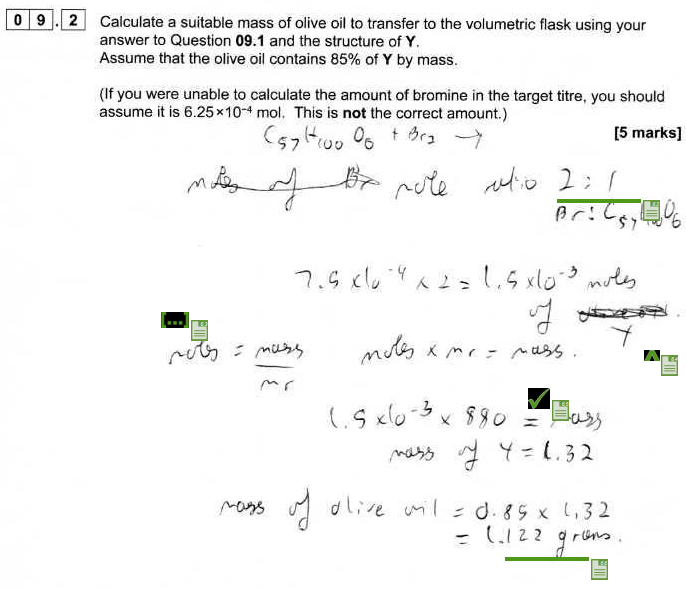 0 9 . 2 Calculate a suitable mass of olive oil to transfer to the volumetric flask using your
answer to Question 09.1 and the structure of Y.
Assume that the olive oil contains 85% of Y by mass.
(If you were unable to calculate the amount of bromine in the target titre, you should
assume it is 6.25×10⁻⁴ mol. This is not the correct amount.)
[5 marks]
C₅₇H₁₀₀O₆ + Br₂ →
moles of Br mole ratio 2 : 1
Br : C₅₇ O₆
7.5 x10⁻⁴ x 2 = 1.5 x10⁻³ moles
of
Y
[...]
moles = mass
mr
moles x mr = mass.
1.5 x10⁻³ x 880 = mass
mass of Y = 1.32
mass of olive oil = 0.85 x 1.32
= 1.122 grams.